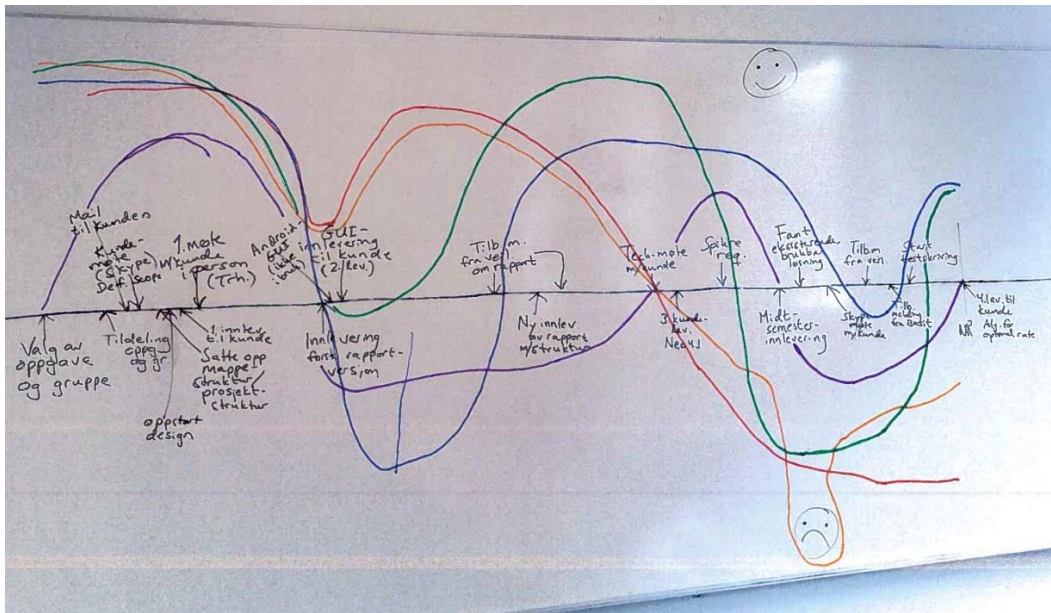 Mail
til kunden
Kunde-
møte
(Skype)
Def. scope
1. møte
m/kunde
i person
(Trh.)
Android-
GUI
(ikke
GUI-
innlevering
til kunde
(2. lev.)
Tilb.m.
fra veil.
om rapport
Tech.møte
m/kunde
Spikre
req.
Fant
eksisterende
brukbar
løsning
Tilbm
fra vei.
Start
testskriving
Valg av
oppgave
og gruppe
Tildeling
oppg.
og gr.
1. innlev.
til kunde
Satte opp
mappe-
struktur/
prosjekt-
struktur
oppstart
design
Innlevering
første rapport-
versjon
Ny innlev.
av rapport
m/struktur
3. kunde-
lev.
Midt-
semester-
innlevering
Skype
møte
m/kunde
Tilb.
melding
fra
4. lev. til
kunde
Alg. for
optimal rate